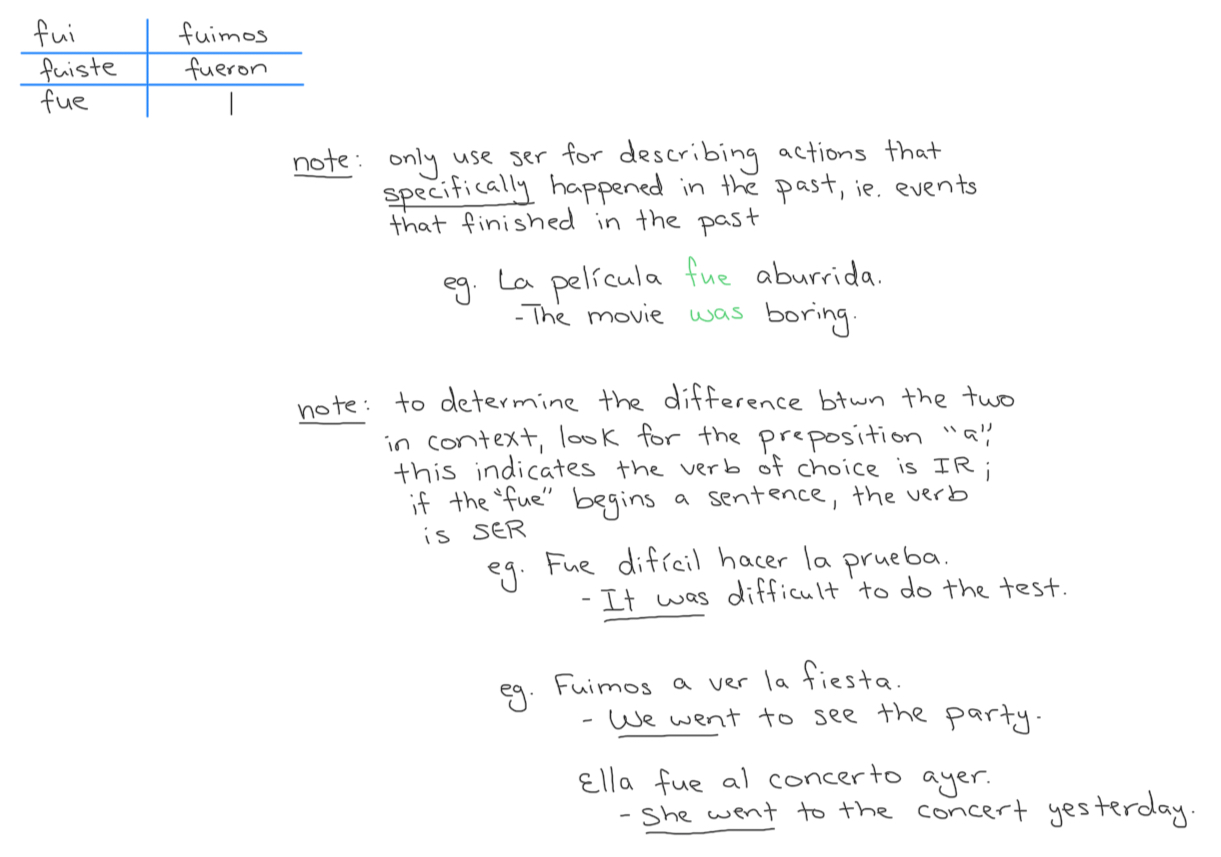 fui fuimos
fuiste fueron
fue |
note: only use ser for describing actions that
specifically happened in the past, ie. events
that finished in the past
eg. La película fue aburrida.
- The movie was boring.
note: to determine the difference btwn the two
in context, look for the preposition "a";
this indicates the verb of choice is IR;
if the "fue" begins a sentence, the verb
is SER
eg. Fue difícil hacer la prueba.
- It was difficult to do the test.
eg. Fuimos a ver la fiesta.
- We went to see the party.
Ella fue al concerto ayer.
- She went to the concert yesterday.